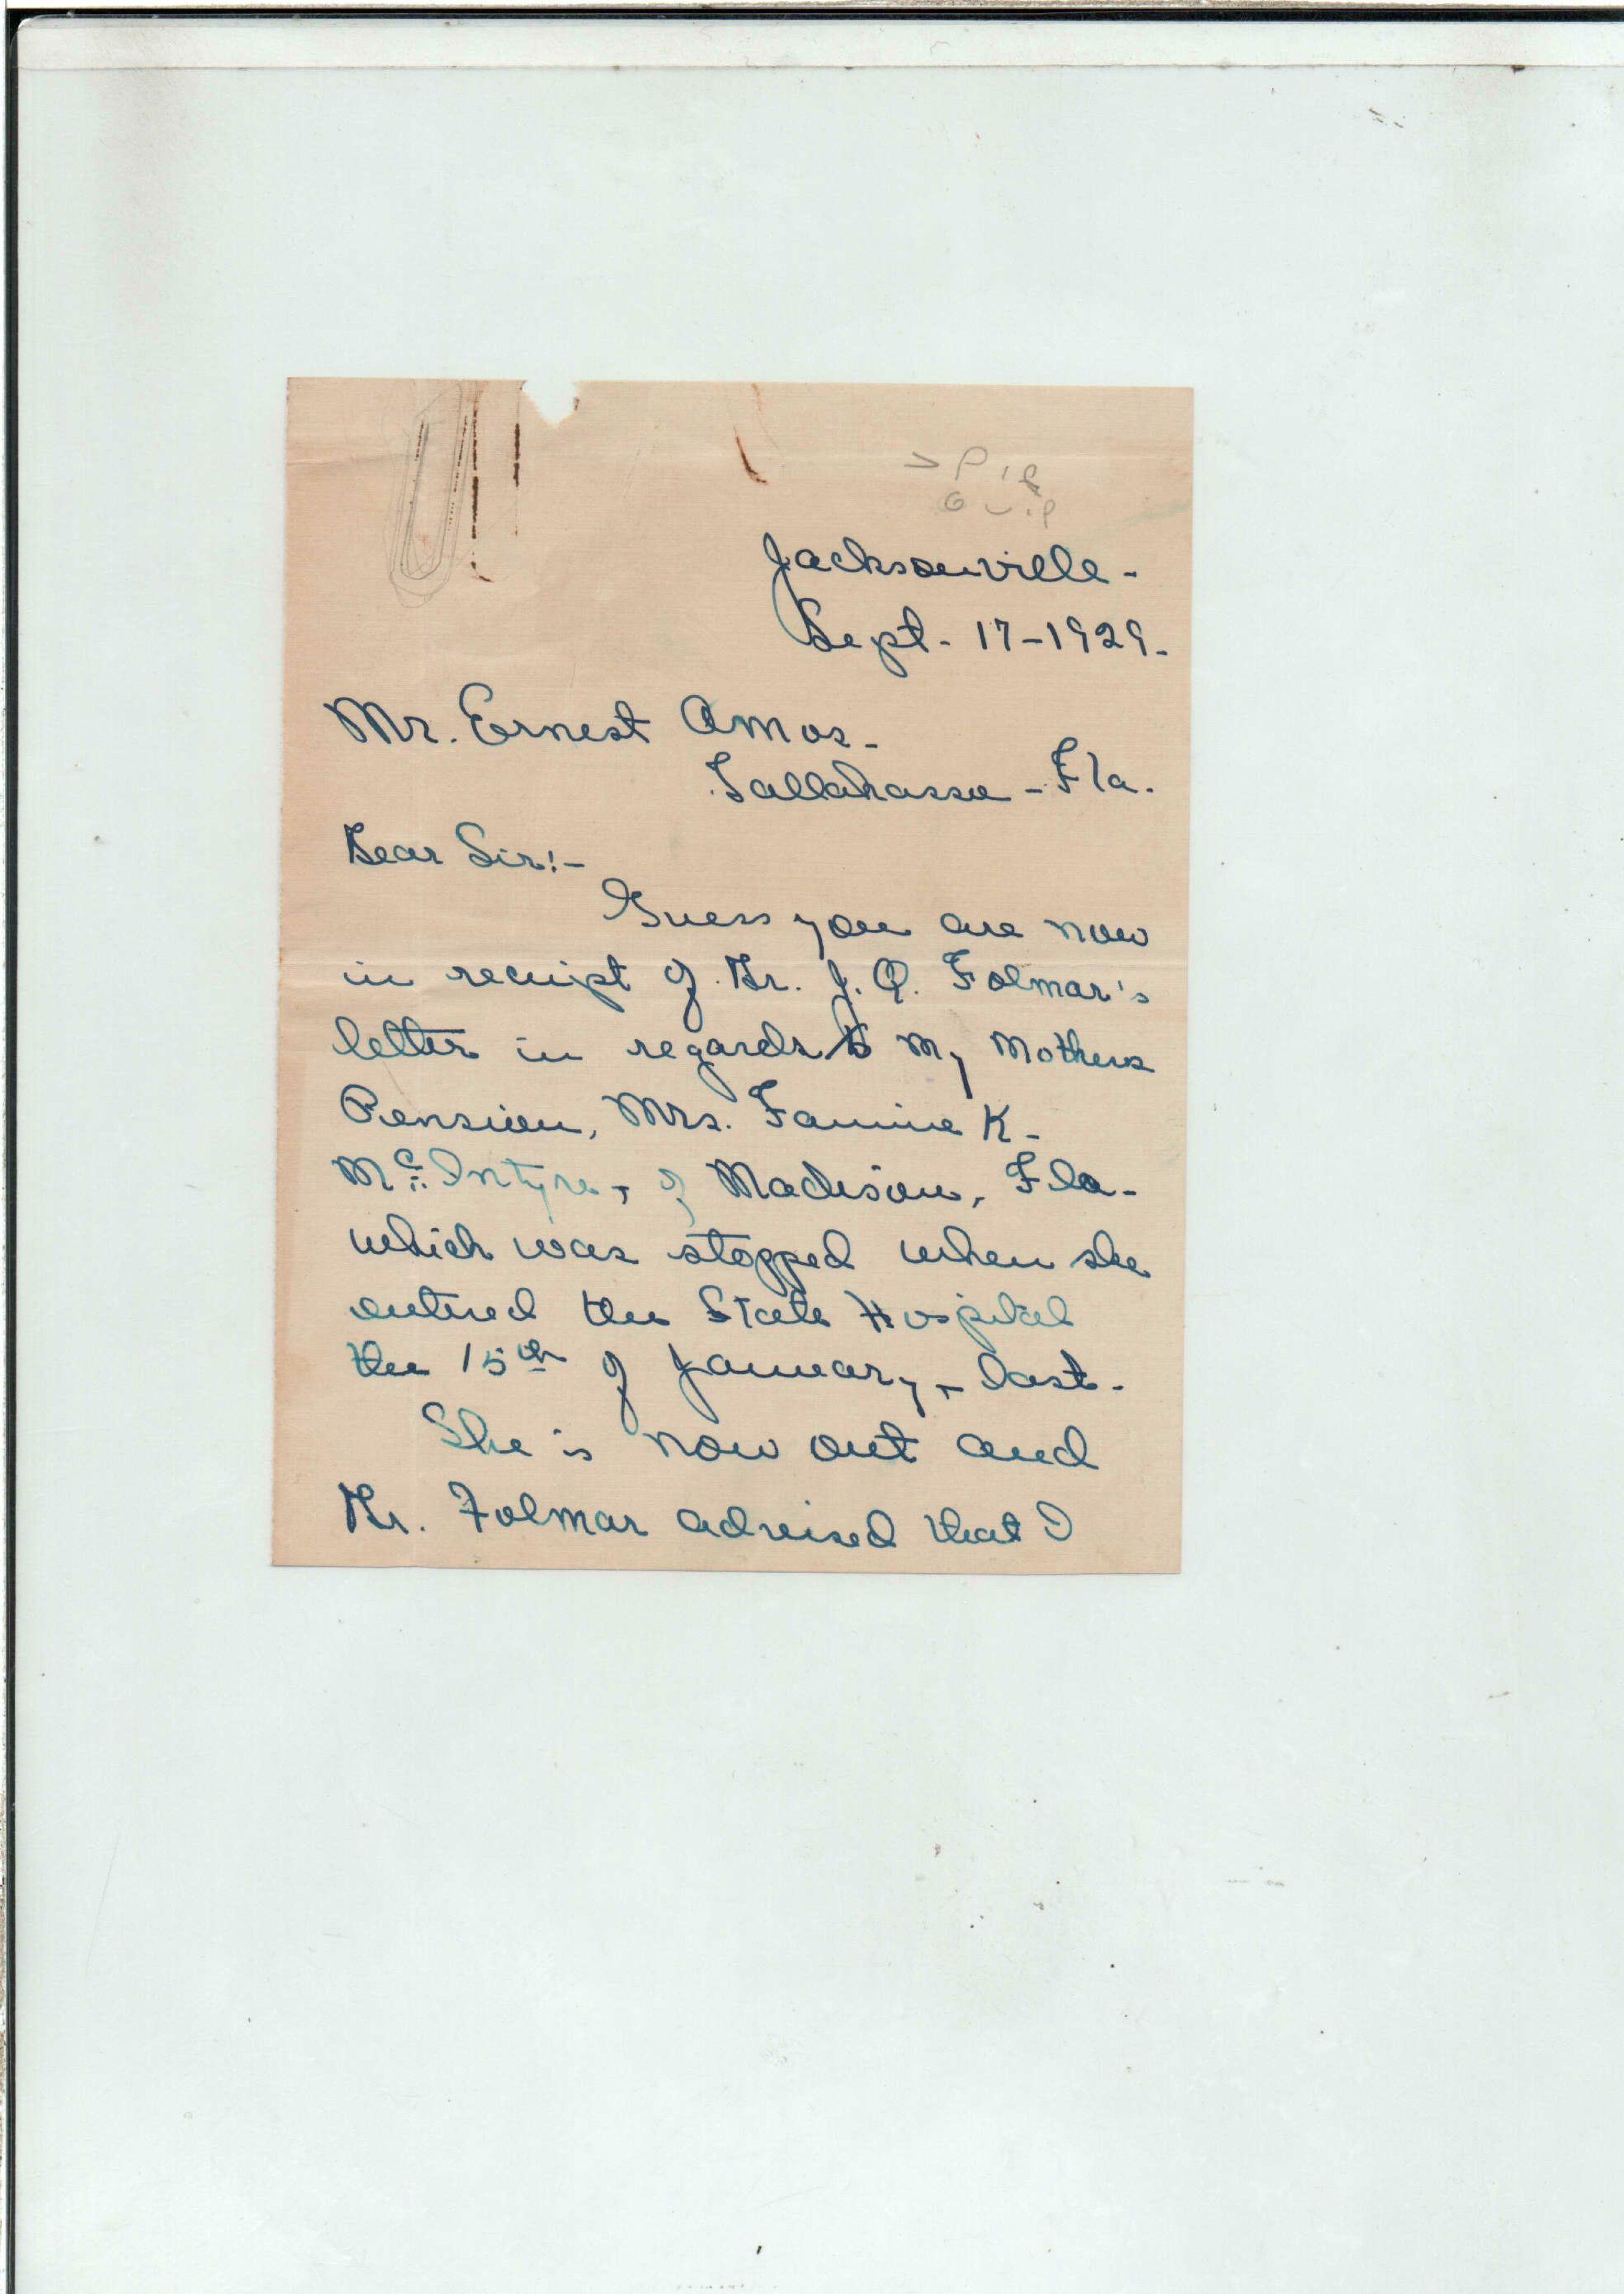 Jacksonville-
Sept- 17-1929-
Mr. Ernest Amos-
Tallahassee-Fla.
Dear Sir:-
Guess you are now
in receipt of Dr. J.Q. Folmar's
letter in regards to My Mothers
Pension, Mrs. Fannie K-
McIntyre, of Madison, Fla-
which was stopped when she
entered the State Hospital
the 15th of January, last-
She is now out and
Dr. Folmar advised that I